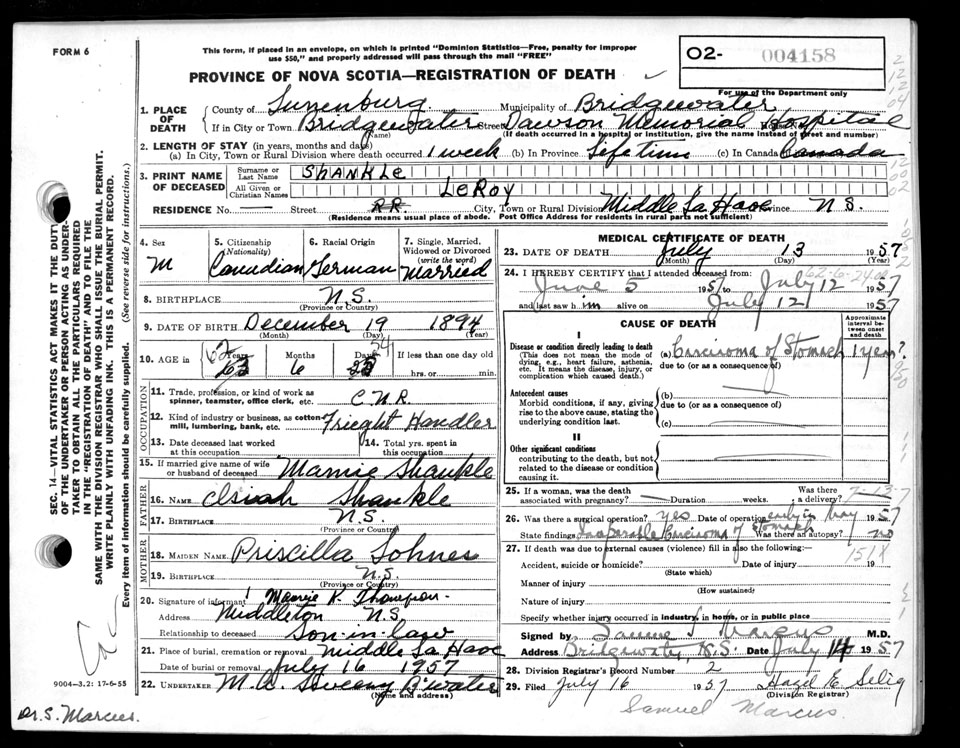 FORM 6
This form, if placed in an envelope, on which is printed "Dominion Statistics—Free, penalty for improper
use $50," and properly addressed will pass through the mail "FREE"
O2- 004158
PROVINCE OF NOVA SCOTIA—REGISTRATION OF DEATH
For use of the Department only
1. PLACE OF DEATH County of Lunenburg Municipality of Bridgewater
If in City or Town Bridgewater Street Dawson Memorial Hospital
(Name) (If death occurred in a hospital or institution, give the name instead of street and number)
2. LENGTH OF STAY (in years, months and days)
(a) In City, Town or Rural Division where death occurred 1 week (b) In Province Life time (c) In Canada Canada
3. PRINT NAME OF DECEASED Surname or Last Name SHANKLE
All Given or Christian Names LeROY
RESIDENCE No. — Street R.R. City, Town or Rural Division Middle La Have Province N.S.
(Residence means usual place of abode. Post Office Address for residents in rural parts not sufficient)
4. Sex M
5. Citizenship (Nationality) Canadian
6. Racial Origin German
7. Single, Married, Widowed or Divorced (write the word) Married
8. BIRTHPLACE N.S.
(Province or Country)
9. DATE OF BIRTH December 19 1894
(Month) (Day) (Year)
10. AGE in Years 62 63 Months 6 Days 24 25 If less than one day old
hrs. or min.
OCCUPATION
11. Trade, profession, or kind of work as spinner, teamster, office clerk, etc. C.N.R.
12. Kind of industry or business, as cotton mill, lumbering, bank, etc. Frieght Handler
13. Date deceased last worked at this occupation
14. Total yrs. spent in this occupation
15. If married give name of wife or husband of deceased Mamie Shankle
FATHER
16. NAME Isiah Shankle
17. BIRTHPLACE N.S.
(Province or Country)
MOTHER
18. MAIDEN NAME Priscilla Sohnes
19. BIRTHPLACE N.S.
(Province or Country)
20. Signature of informant K. Thompson
Address Middleton N.S.
Relationship to deceased Son-in-law
21. Place of burial, cremation or removal Middle La Have
Date of burial or removal July 16 1957
22. UNDERTAKER M.A. Sweeny B'water
(Name and address)
MEDICAL CERTIFICATE OF DEATH
23. DATE OF DEATH July 13 1957
(Month) (Day) (Year)
24. I HEREBY CERTIFY that I attended deceased from
June 5 1957 to July 12 1957
and last saw him alive on July 12 1957
62-6-24
CAUSE OF DEATH
Approximate interval between onset and death
I
Disease or condition directly leading to death (a) Carcinoma of Stomach 1 year?
(This does not mean the mode of dying, e.g., heart failure, asthenia, etc. It means the disease, injury, or complication which caused death.)
due to (or as a consequence of)
Antecedent causes (b)
Morbid conditions, if any, giving rise to the above cause, stating the underlying condition last.
due to (or as a consequence of)
(c)
II
Other significant conditions contributing to the death, but not related to the disease or condition causing it.
25. If a woman, was the death associated with pregnancy? — Duration weeks. Was there a delivery?
7-13-7
26. Was there a surgical operation? yes Date of operation early in May 1957
State findings Inoperable Carcinoma of Stomach Was there an autopsy? no
27. If death was due to external causes (violence) fill in also the following:
151X
Accident, suicide or homicide? Date of injury 19
(State which)
Manner of injury
(How sustained)
Nature of injury
Specify whether injury occurred in industry, in home, or in public place
Signed by Samuel Marcus M.D.
Address Bridgewater, N.S. Date July 14 1957
28. Division Registrar's Record Number 2
29. Filed July 16 1957 Hazel E. Selig
(Division Registrar)
Samuel Marcus.
SEC. 14—VITAL STATISTICS ACT MAKES IT THE DUTY
OF THE UNDERTAKER OR PERSON ACTING AS UNDER-
TAKER TO OBTAIN ALL THE PARTICULARS REQUIRED
IN THE "REGISTRATION OF DEATH" AND TO FILE THE
SAME WITH THE DIVISION REGISTRAR WHO SHALL ISSUE THE BURIAL PERMIT.
WRITE PLAINLY WITH UNFADING INK. THIS IS A PERMANENT RECORD.
Every item of information should be carefully supplied. (See reverse side for instructions.)
9004—3.2: 17-6-55
Dr. S. Marcus.